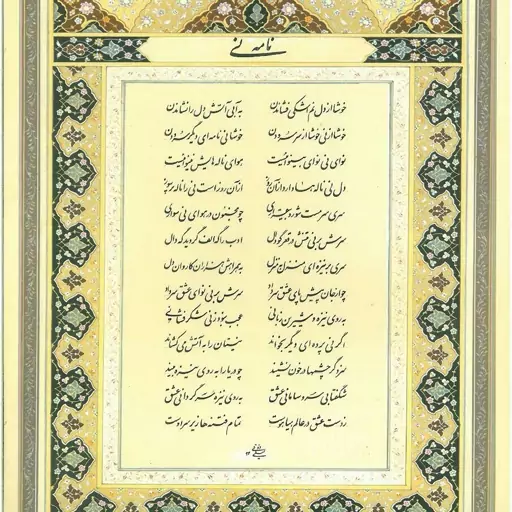 نامه نی
خوشا از دل نم اشکی فشاندن به آبی آتش دل را نشاندن
خوشا نی خوشا از سر سرودن خوشا نی نامه‌ای دیگر سرودن
نوای نی نوای بینوایی هوای ناله هایش نینوایی
دل نی ناله ها دارد از آن روز از آن روز است نی را ناله پرسوز
سری سرمست شور و بیقراری چو مجنون در هوای نی سواری
سرش بر نی تنش در قعر گودال ادب را گه الف گردید گه دال
سری بر نیزه‌ای منزل به منزل به همراهش هزاران کاروان دل
چو از جان پیش پای عشق سر داد سرش بر نی نوای عشق سر داد
به روی نیزه و شیرین زبانی عجب نبود ز نی شکر فشانی
اگر نی پرده ای دیگر بخواند نیستان را به آتش می‌کشاند
سزد گر چشمها در خون نشیند چو دریا را به روی نیزه بیند
شگفتا بی سر و سامانی عشق به روی نیزه سرگردانی عشق
ز دست عشق در عالم هیاهوست تمام فتنه ها زیر سر اوست